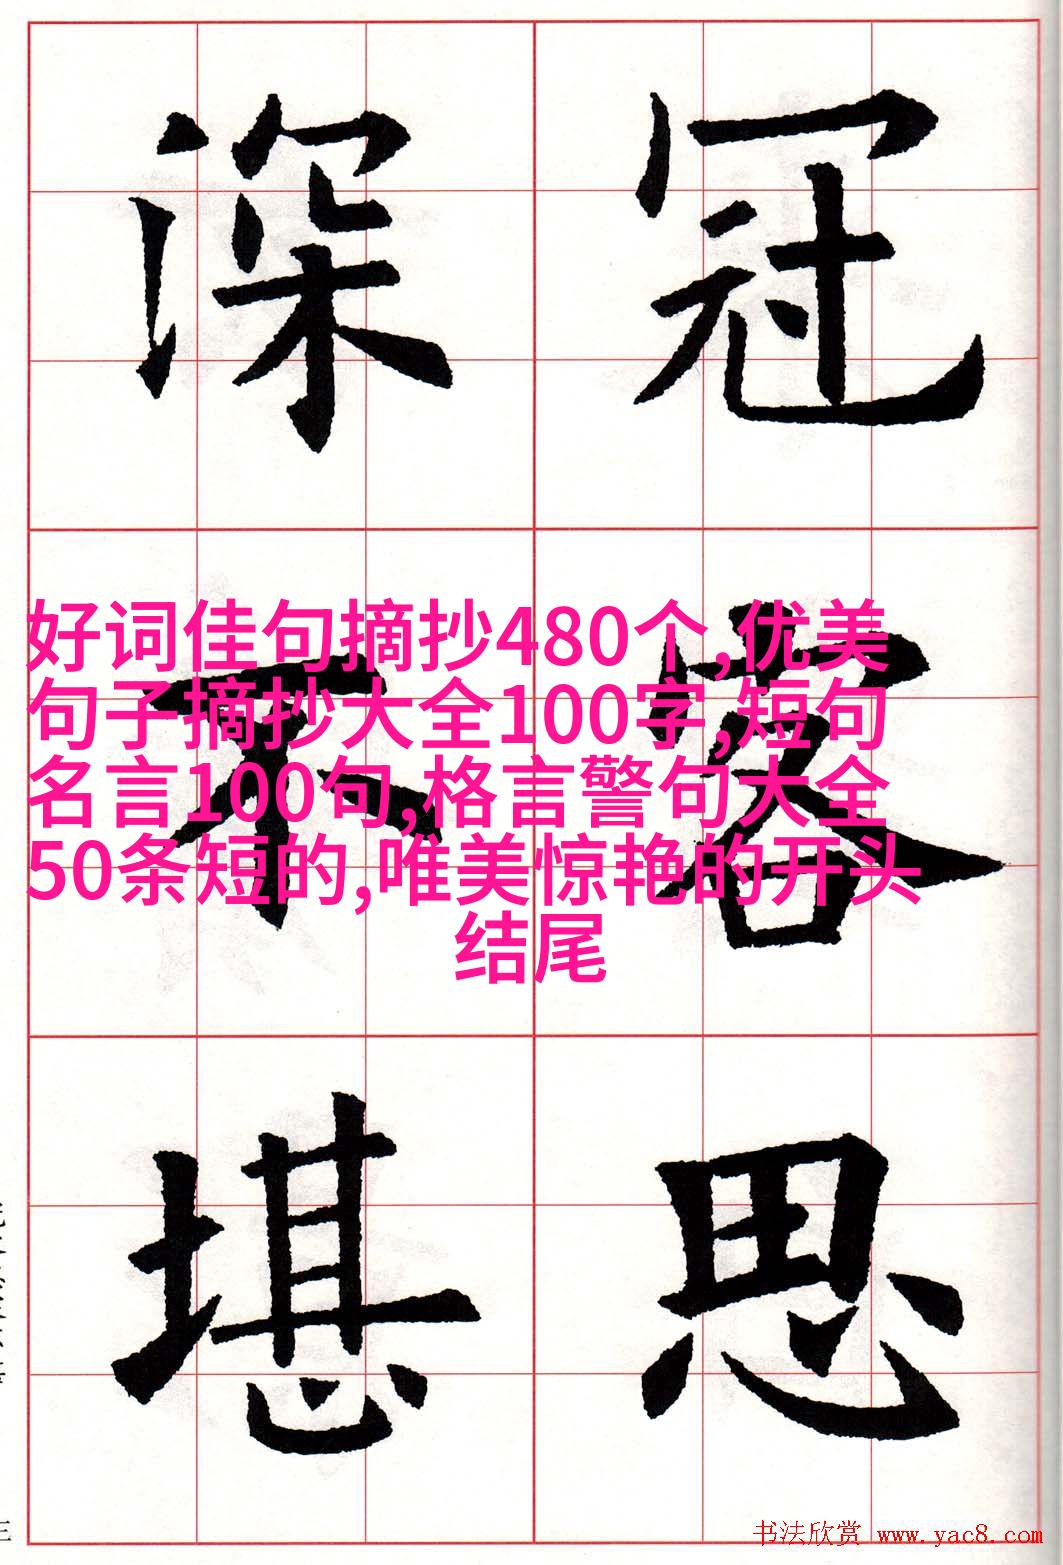 冠容思
深不堪
好词佳句摘抄480个,优美
句子摘抄大全100字,短句
名言100句,格言警句大全
50条短的,唯美惊艳的开头
结尾
书法欣赏 www.yac8.com